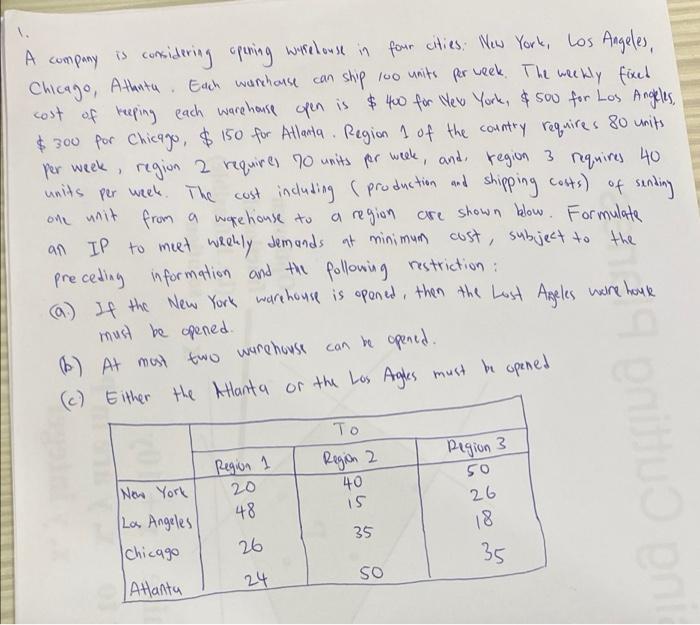 1.
A company is considering opening warehouse in four cities: New York, Los Angeles,
Chicago, Atlanta. Each warehouse can ship 100 units per week. The weekly fixed
cost of keeping each warehouse open is $ 400 for New York, $ 500 for Los Angeles,
$ 300 for Chicago, $ 150 for Atlanta. Region 1 of the country requires 80 units
per week, region 2 requires 70 units per week, and, region 3 requires 40
units per week. The cost including (production and shipping costs) of sending
one unit from a warehouse to a region are shown blow. Formulate
an IP to meet weekly demands at minimum cost, subject to the
preceding information and the following restriction:
(a.) If the New York warehouse is opened, then the Lost Angeles warehouse
must be opened.
(b) At most two warehouse can be opened.
(c) Either the Atlanta or the Los Angles must be opened
To
Region 1 Region 2 Region 3
New York 20 40 50
Los Angeles 48 15 26
Chicago 26 35 18
Atlanta 24 50 35